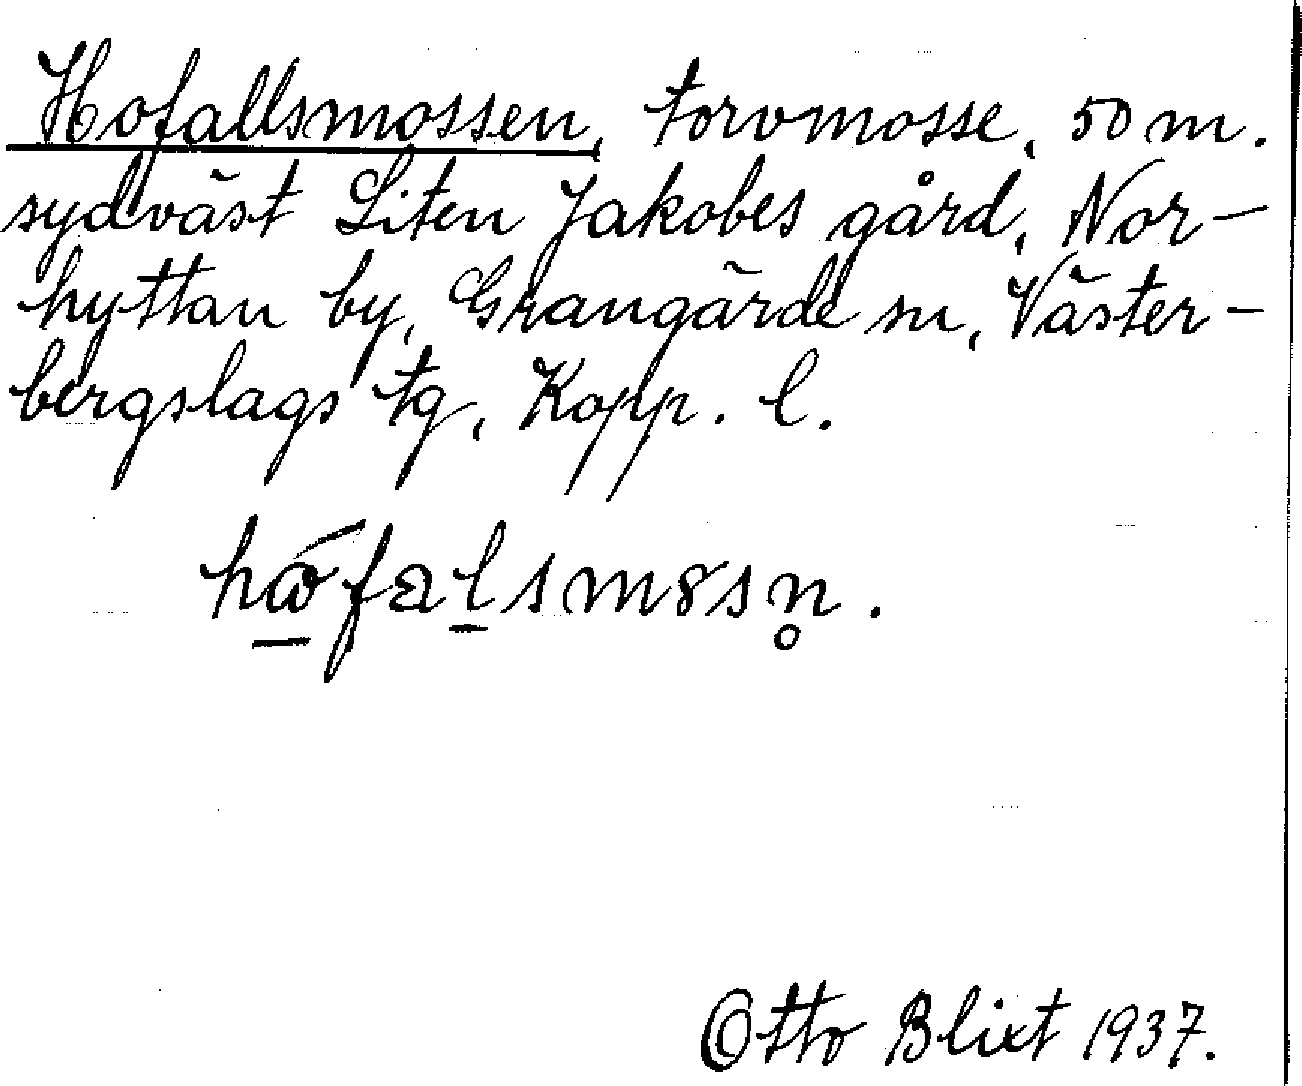 Hofallsmossen, torvmosse, 50 m.
sydväst Liten Jakobes gård, Nor-
hyttan by, Grangärde sn, Väster-
bergslags tg, Kopp. l.
Otto Blixt 1937.